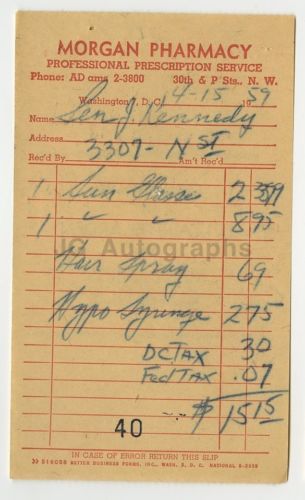 MORGAN PHARMACY
PROFESSIONAL PRESCRIPTION SERVICE
Phone: AD ams 2-3800 30th & P Sts., N. W.
Washington 7, D. C. 4-15 19 59
Name Sen J. Kennedy
Address 3307 - N ST
Rec'd By Am't Rec'd
1 Sun Glasses 2 39
1 " " 8 95
JG Autographs
Hair Spray 69
Hypo Syringe 2 75
DC TAX 30
Fed TAX .07
$ 15 15
40
IN CASE OF ERROR RETURN THIS SLIP
BETTER BUSINESS FORMS, INC., WASH. 5, D. C. NATIONAL